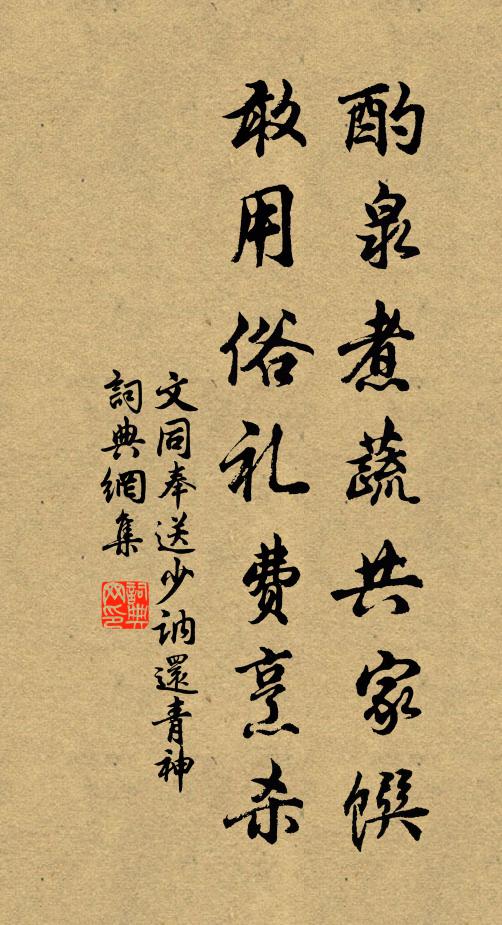 酌泉煮蔬共家馔
敢用俗礼费烹杀
文同奉送少讷還青神
詞典網集
詞典网印